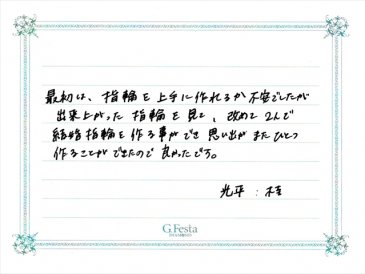 最初は、指輪を上手に作れるか不安でしたが
出来上がった指輪を見て、改めて2人で
結婚指輪を作る事ができ思い出がまたひとつ
作ることができたので良かったです。
光平:
G.Festa